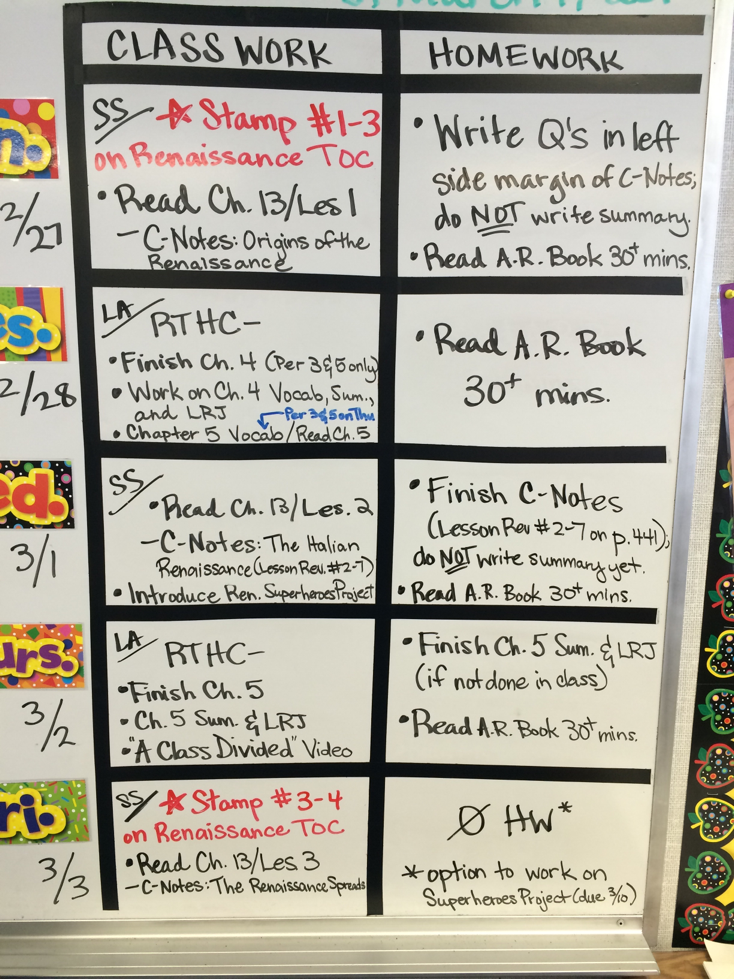 CLASS WORK
HOMEWORK
n.
2/27
SS/ ☆ Stamp #1-3
on Renaissance TOC
• Read Ch. 13/Les 1
– C-Notes: Origins of the
Renaissance
• Write Q's in left
side margin of C-Notes;
do NOT write summary.
• Read A.R. Book 30+ mins.
es.
2/28
LA/ RTHC-
• Finish Ch. 4 (Per 3&5 only)
• Work on Ch. 4 Vocab, Sum.,
and LRJ
Per 3&5 on Thu
• Chapter 5 Vocab/Read Ch. 5
• Read A.R. Book
30+ mins.
ed.
3/1
SS/
• Read Ch. 13/Les. 2
– C-Notes: The Italian
Renaissance (Lesson Rev. #2-7)
• Introduce Ren. Superheroes Project
• Finish C-Notes
(Lesson Rev #2-7 on p. 441);
do NOT write summary yet.
• Read A.R. Book 30+ mins.
urs.
3/2
LA/ RTHC-
• Finish Ch. 5
• Ch. 5 Sum. & LRJ
• "A Class Divided" Video
• Finish Ch. 5 Sum. & LRJ
(if not done in class)
• Read A.R. Book 30+ mins.
ri.
3/3
SS/ ☆ Stamp #3-4
on Renaissance TOC
• Read Ch. 13/Les. 3
– C-Notes: The Renaissance Spreads
Ø HW*
* option to work on
Superheroes Project (due 3/10)